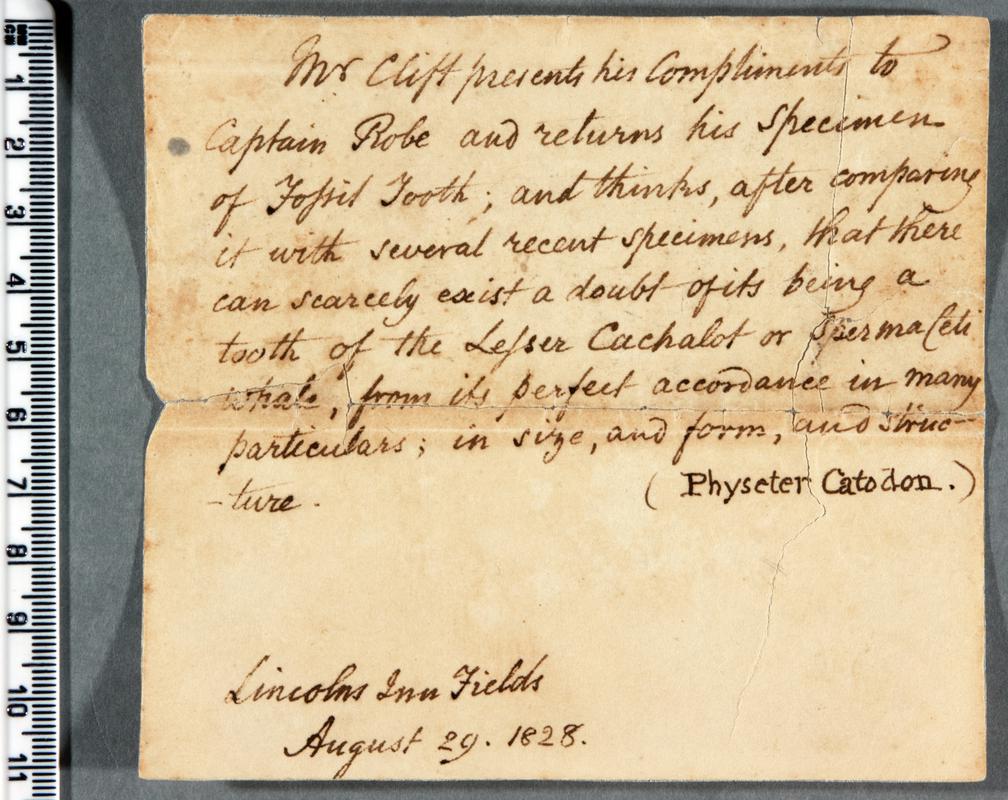 Mr Clift presents his Compliments to
Captain Robe and returns his Specimen
of Fossil Tooth; and thinks, after comparing
it with several recent specimens, that there
can scarcely exist a doubt of its being a
tooth of the Lesser Cachalot or Spermaceti
whale, from its perfect accordance in many
particulars; in size, and form, and struc-
-ture.
(Physeter Catodon.)
Lincolns Inn Fields
August 29. 1828.
1
2
3
4
5
6
7
8
9
10
11